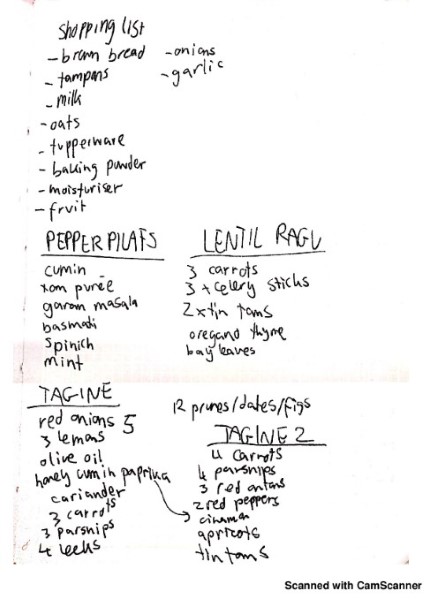 Shopping list
- brown bread
- tampons
- milk
- oats
- tupperware
- baking powder
- moisturiser
- fruit
- onions
- garlic
PEPPER PILAFS
cumin
tom purée
garam masala
basmati
spinich
mint
LENTIL RAGU
3 carrots
3 x celery sticks
2 x tin toms
oregano thyme
bay leaves
TAGINE
red onions 5
3 lemons
olive oil
honey cumin paprika
coriander
3 carrots
3 parsnips
4 leeks
12 prunes/dates/figs
TAGINE 2
4 carrots
4 parsnips
3 red onions
2 red peppers
cinamon
apricots
tin toms
Scanned with CamScanner